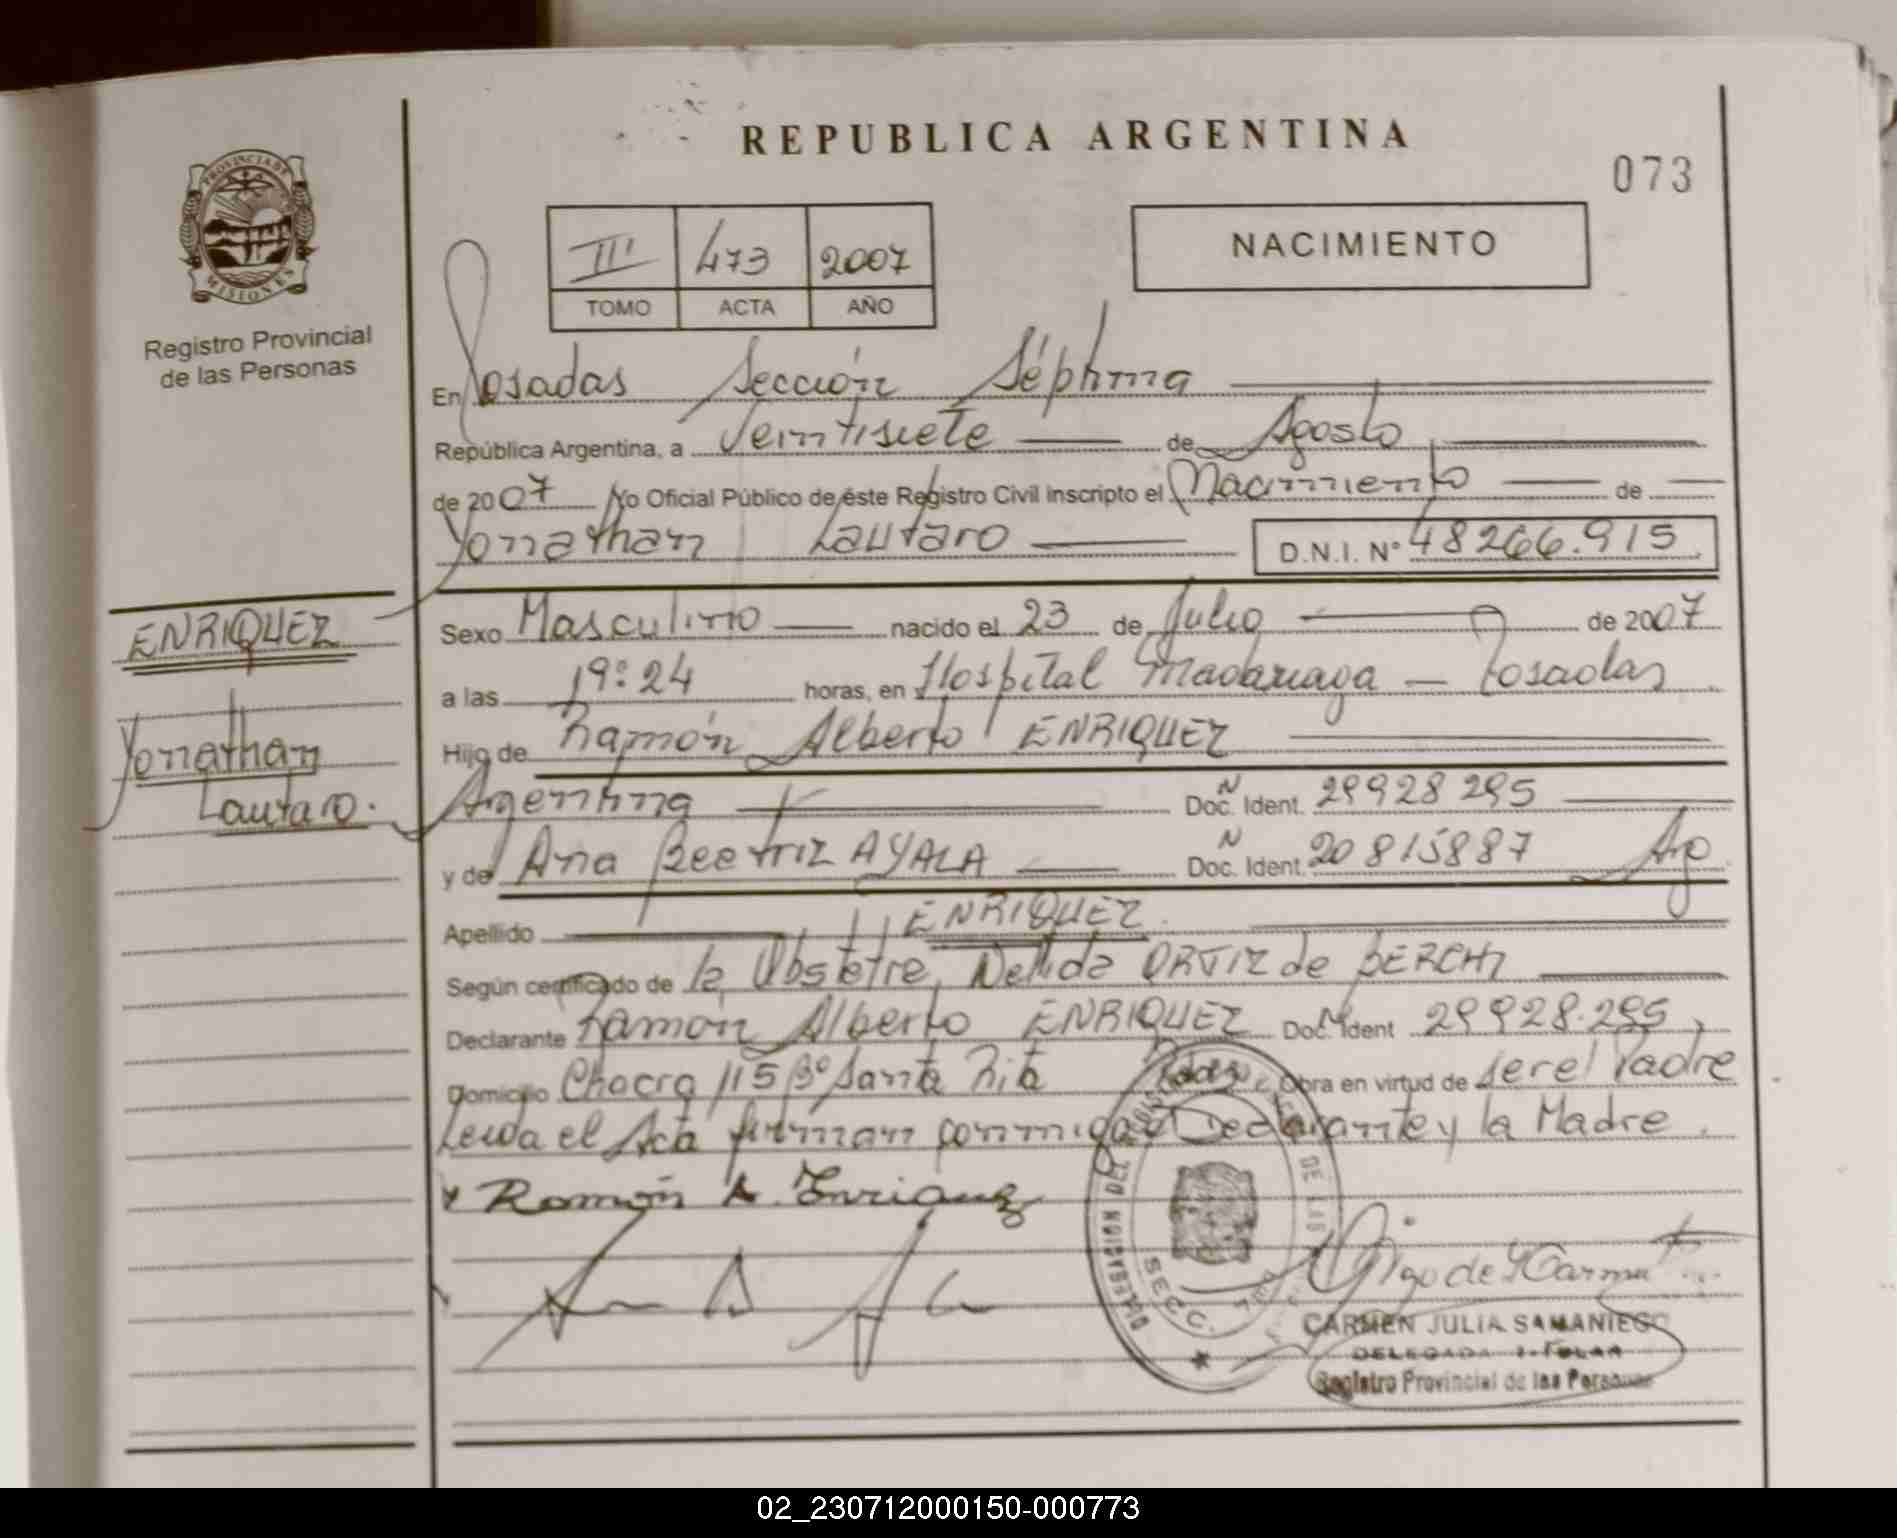 REPUBLICA ARGENTINA
073
PROVINCIA DE MISIONES
Registro Provincial
de las Personas
III 473 2007
TOMO ACTA AÑO
NACIMIENTO
En Posadas Sección Séptima
República Argentina, a Veintisiete de Agosto
de 2007 Yo Oficial Público de éste Registro Civil inscripto el Nacimiento de
Yonathan Lautaro D.N.I. Nº 48266.915
ENRIQUEZ
Yonathan
Lautaro.
Sexo Masculino nacido el 23 de Julio de 2007
a las 19:24 horas, en Hospital Madariaga — Posadas
Hijo de Ramón Alberto ENRIQUEZ
Argentina Doc. Ident. N 29928295
y de Ana Beatriz AYALA Doc. Ident. N 20815887 Arg
Apellido ENRIQUEZ.
Según certificado de la Obstetre, Nellida ORTIZ de BERCHI
Declarante Ramón Alberto ENRIQUEZ Doc. Ident N 29928.295,
Domicilio Chacra 115 Bº Santa Rita Pdas. Obra en virtud de ser el Padre
Leida el Acta firman conmigo el Declarante y la Madre.
x Ramón A. Enriquez
DELEGACION DEL REGISTRO DE LAS
SECC. 7
CARMEN JULIA SAMANIEGO
DELEGADA TITULAR
Registro Provincial de las Personas
02_230712000150-000773